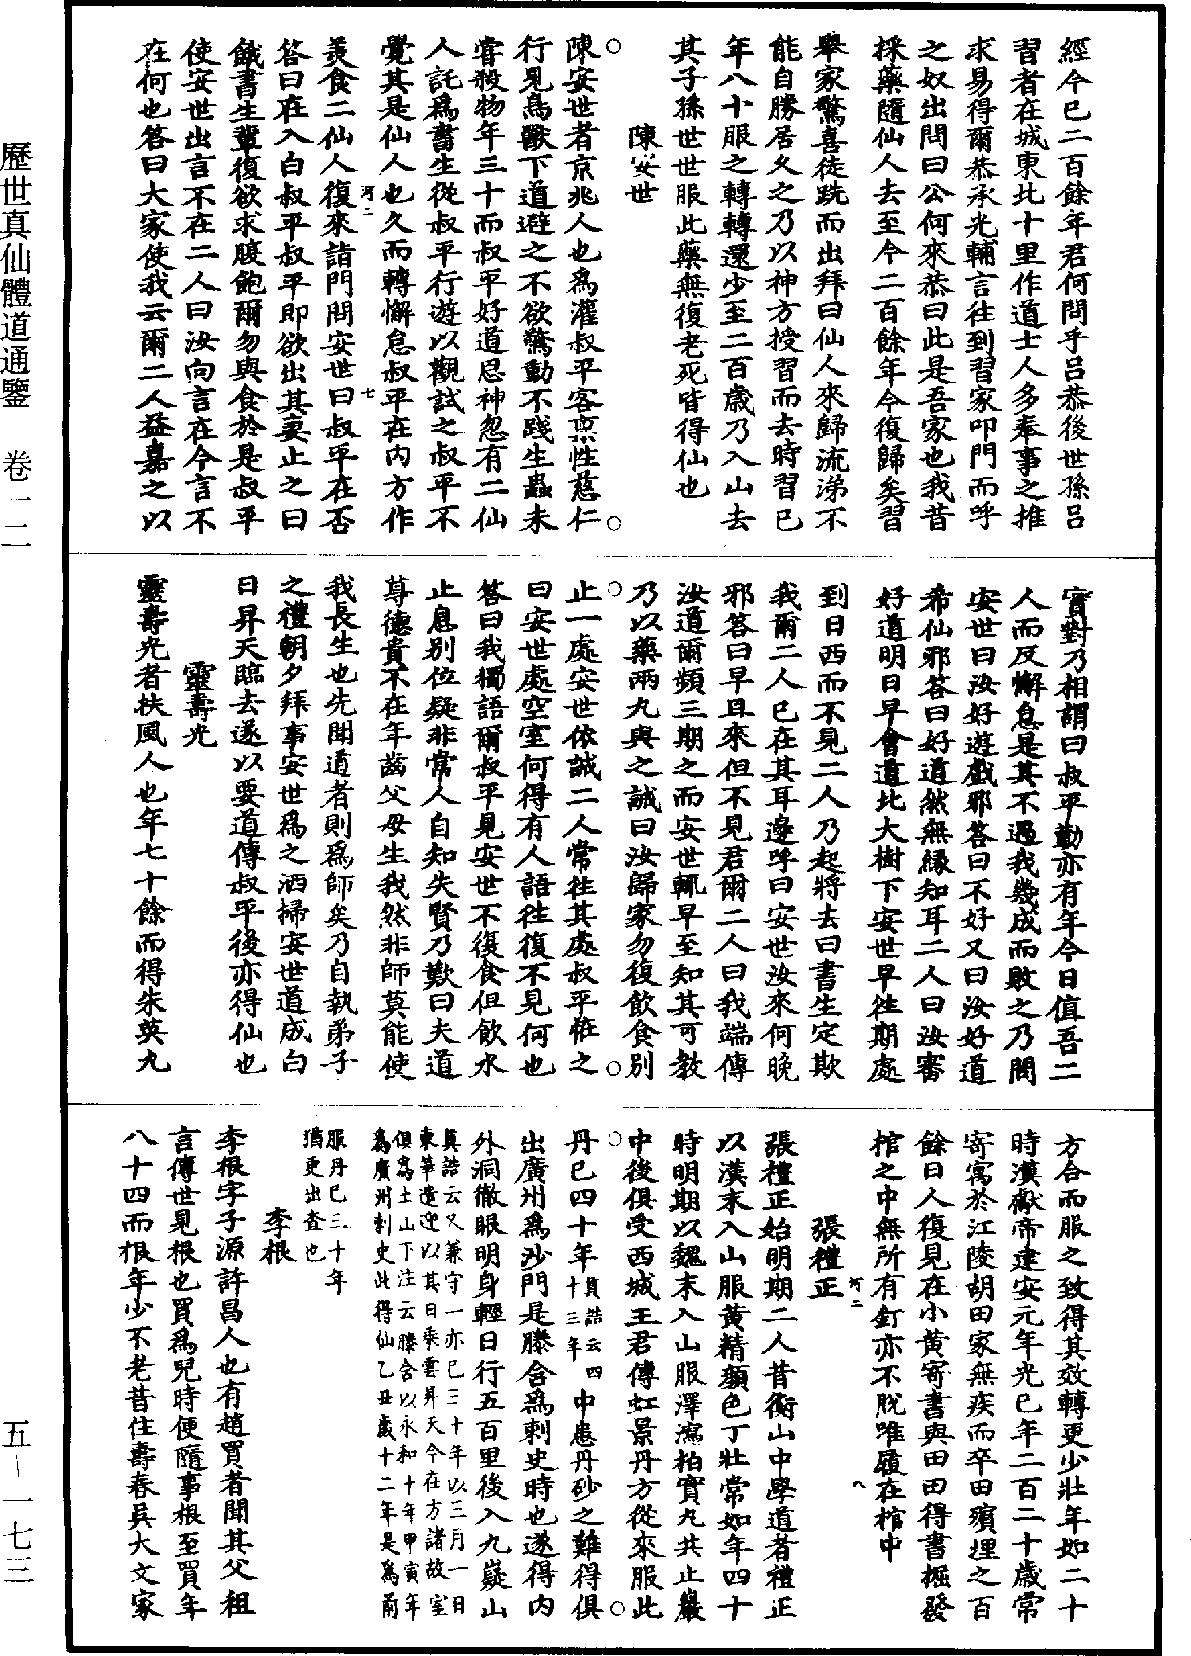 經今已二百餘年君何問乎呂恭後世孫呂
習者在城東北十里作道士人多奉事之推
求易得爾恭承光輔言往到習家叩門而呼
之奴出問曰公何來恭曰此是吾家也我昔
採藥隨仙人去至今二百餘年今復歸矣習
舉家驚喜徒跣而出拜曰仙人來歸流涕不
能自勝居久之乃以神方授習而去時習已
年八十服之轉轉還少至二百歲乃入山去
其子孫世世服此藥無復老死皆得仙也
陳安世
陳安世者京兆人也為灌叔平客稟性慈仁
行見鳥獸下道避之不欲驚動不踐生蟲未
嘗殺物年三十而叔平好道思神忽有二仙
人託為書生從叔平行遊以觀試之叔平不
覺其是仙人也久而轉懈怠叔平在內方作
河二 七
羙食二仙人復來詣門問安世曰叔平在否
答曰在入白叔平叔平即欲出其妻止之曰
餓書生輩復欲求腹飽爾勿與食於是叔平
使安世出言不在二人曰汝向言在今言不
在何也答曰大家使我云爾二人益嘉之以
實對乃相謂曰叔平勤亦有年今日值吾二
人而反懈怠是其不遇我幾成而敗之乃問
安世曰汝好遊戲邪答曰不好又曰汝好道
希仙邪答曰好道然無緣知耳二人曰汝審
好道明日早會道北大樹下安世早往期處
到日西而不見二人乃起將去曰書生定欺
我爾二人已在其耳邊呼曰安世汝來何晚
邪答曰早旦來但不見君爾二人曰我端傳
汝道爾頻三期之而安世輒早至知其可教
乃以藥兩丸與之誡曰汝歸家勿復飲食別
止一處安世依誡二人常往其處叔平恠之
曰安世處空室何得有人語往復不見何也
答曰我獨語爾叔平見安世不復食但飲水
止息別位疑非常人自知失賢乃歎曰夫道
尊德貴不在年齒父母生我然非師莫能使
我長生也先聞道者則為師矣乃自執弟子
之禮朝夕拜事安世為之洒掃安世道成白
日昇天臨去遂以要道傳叔平後亦得仙也
靈壽光
靈壽光者扶風人也年七十餘而得朱英丸
方合而服之致得其效轉更少壯年如二十
時漢獻帝建安元年光已年二百二十歲常
寄寓於江陵胡田家無疾而卒田殯埋之百
餘日人復見在小黃寄書與田田得書掘發
棺之中無所有釘亦不脫唯履在棺中
河二 八
張禮正
張禮正始明期二人昔衡山中學道者禮正
以漢末入山服黃精顏色丁壯常如年四十
時明期以魏末入山服澤瀉柏實丸共止巖
中後俱受西城王君傳虹景丹方從來服此
丹已四十年真誥云四十三年中患丹砂之難得俱
出廣州為沙門是滕含為刺史時也遂得內
外洞徹眼明身輕日行五百里後入九嶷山
真誥云又兼守一亦已三十年以三月一日
東華遣迎以其日乘雲昇天今在方諸故室
俱為上山下注云滕含以永和十年甲寅年
為廣州刺史此得仙乙丑歲十二年是為前
服丹已三十年
猶更出查也
李根
李根字子源許昌人也有趙買者聞其父祖
言傳世見根也買為兒時便隨事根至買年
八十四而根年少不老昔住壽春吳大文家
歷世真仙體道通鑒 卷一二
五-一七三